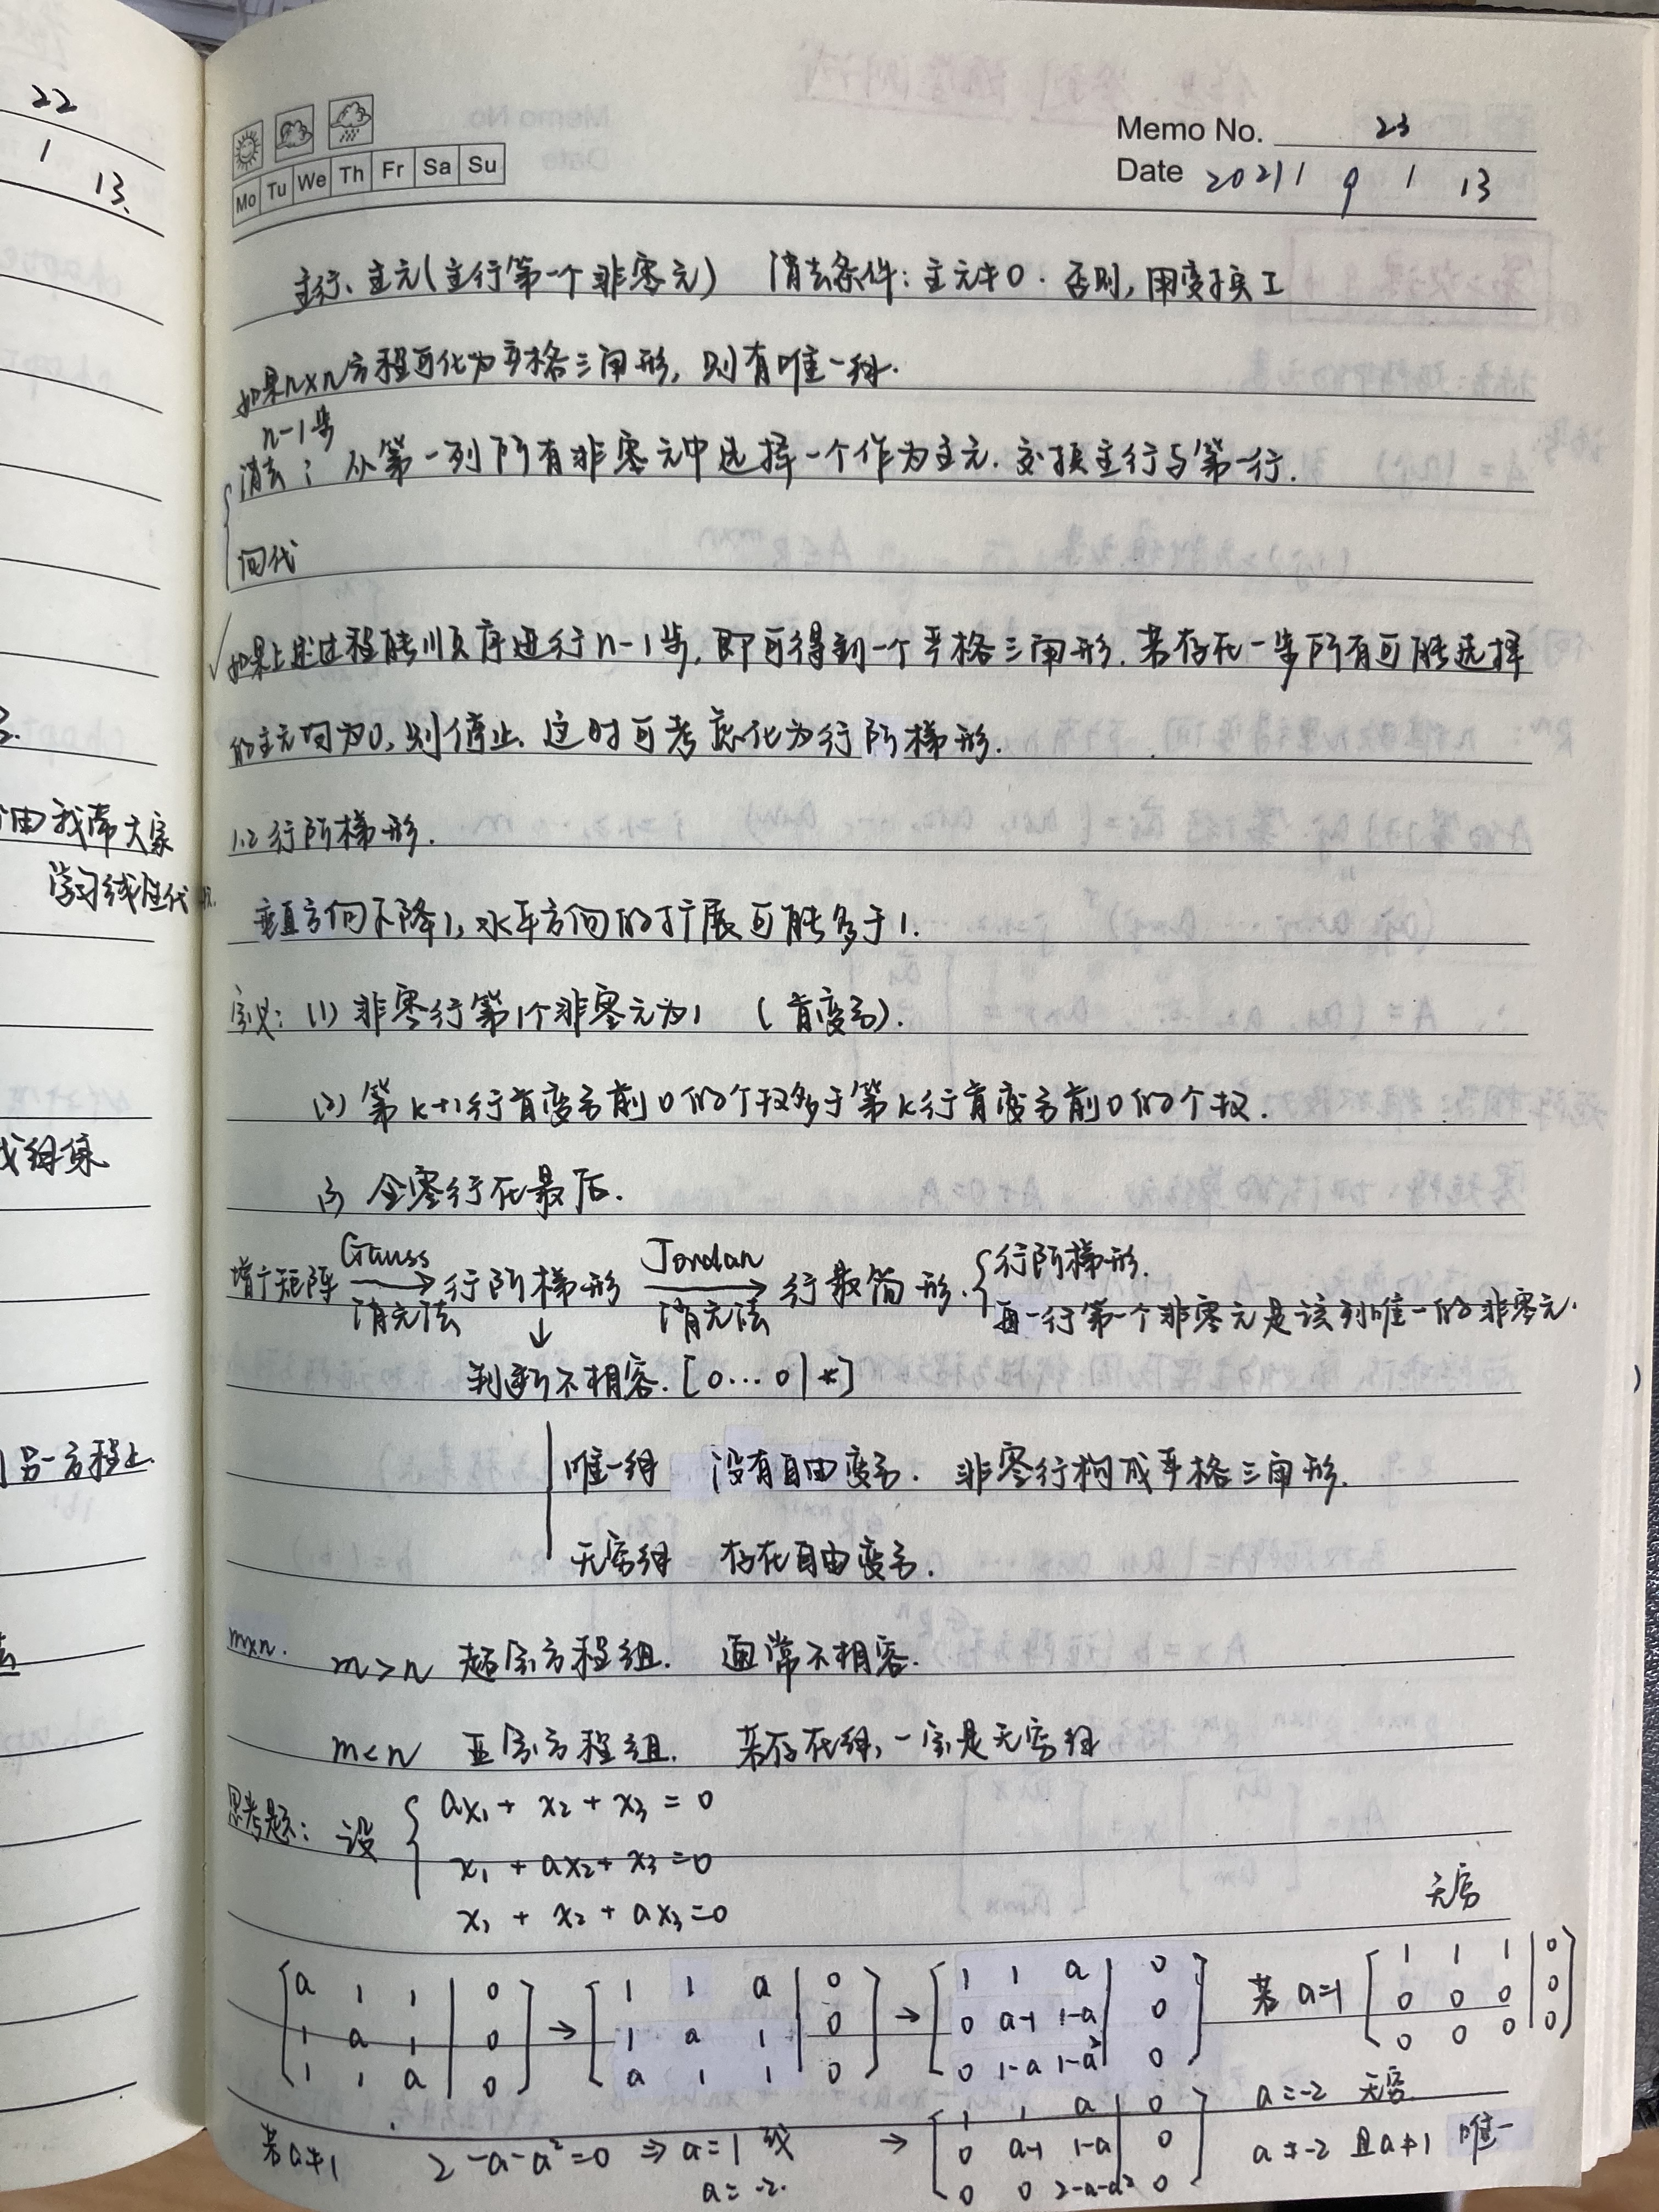 22
1
13.
由我带大家
学习线性代数.
成组练
另一方程上.
Memo No. 23
Mo Tu We Th Fr Sa Su
Date 2021 9 1 13
主行、主元(主行第一个非零元) 消去条件: 主元≠0. 否则, 用变换I
如果n×n方程可化为严格三角形, 则有唯一解.
n-1步
消去: 从第一列所有非零元中选择一个作为主元. 交换主行与第一行.
回代
√如果上述过程能顺序进行n-1步, 即可得到一个严格三角形. 若存在一步所有可能选择
的主元均为0, 则停止. 这时可考虑化为行阶梯形.
1.2 行阶梯形.
垂直方向下降1, 水平方向的扩展可能多于1.
定义: (1) 非零行第1个非零元为1 (首变多).
(2) 第k+1行首变多前0的个数多于第k行首变多前0的个数.
(3) 全零行在最后.
增广矩阵 Gauss消元法→ 行阶梯形 Jordan消元法→ 行最简形. { 行阶梯形.
每一行第一个非零元是该列唯一的非零元.
↓
判断不相容. [0…0|*]
唯一解 没有自由变多. 非零行构成严格三角形.
无穷解 存在自由变多.
m×n. m>n 超定方程组. 通常不相容.
m<n 亚定方程组. 若存在解, 一定是无穷解
思考题: 设 { ax₁ + x₂ + x₃ = 0
x₁ + ax₂ + x₃ = 0
x₁ + x₂ + ax₃ = 0
无穷
[a 1 1 | 0 → [1 1 a | 0 → [1 1 a | 0 若 a=1 [1 1 1 | 0
1 a 1 | 0 1 a 1 | 0 0 a-1 1-a | 0 0 0 0 | 0
1 1 a | 0] a 1 1 | 0] 0 1-a 1-a² | 0] 0 0 0 | 0]
→ [1 1 a | 0 a=-2 无穷.
若a≠1 2-a-a²=0 ⇒ a=1 或 0 a-1 1-a | 0 a≠-2 且a≠1 唯一
a=-2. 0 0 2-a-a² | 0]